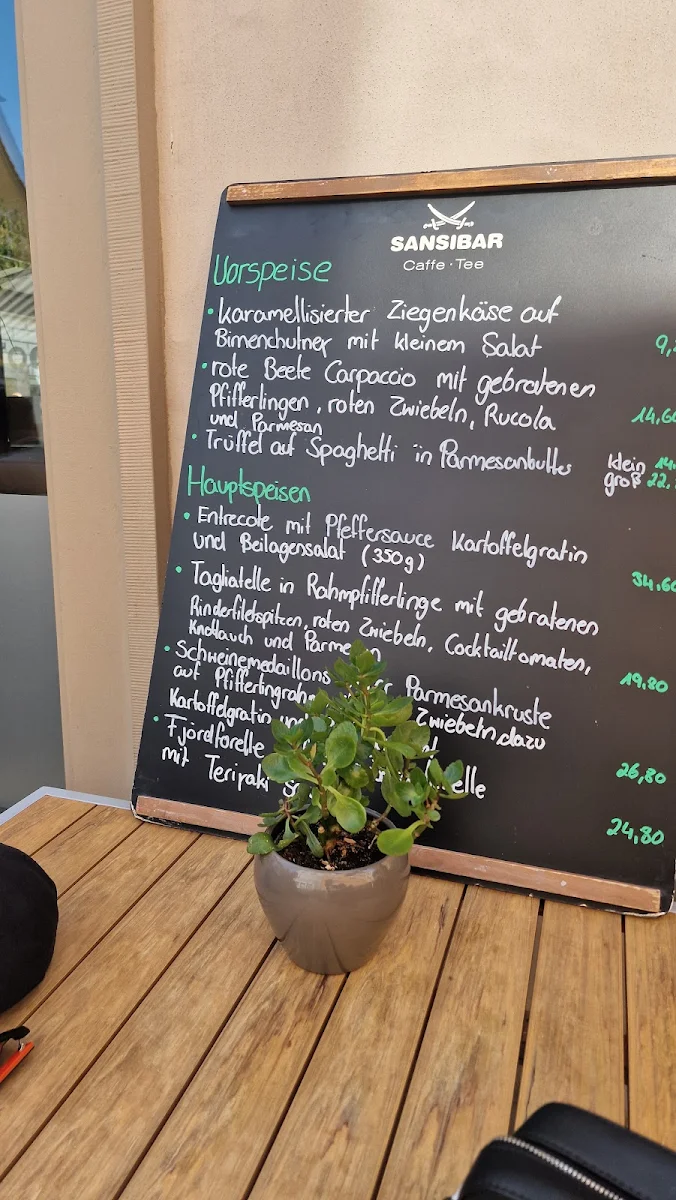 SANSIBAR
Caffe · Tee
Vorspeise
• karamellisierter Ziegenkäse auf
Birnenchutney mit kleinem Salat 9,
• rote Beete Carpaccio mit gebratenen
Pfifferlingen, roten Zwiebeln, Rucola 14,60
und Parmesan
• Trüffel auf Spaghetti in Parmesanbutter klein 14.
groß 22.
Hauptspeisen
• Entrecote mit Pfeffersauce Kartoffelgratin
und Beilagensalat (350g) 34,60
• Tagliatelle in Rahmpfifferlinge mit gebratenen
Rinderfiletspitzen, roten Zwiebeln, Cocktailtomaten,
Knoblauch und Parmesan 19,80
• Schweinemedaillons Parmesankruste
auf Zwiebeln, dazu
Kartoffelgratin 26,80
• Fjordforelle
mit Teriyaki 24,80